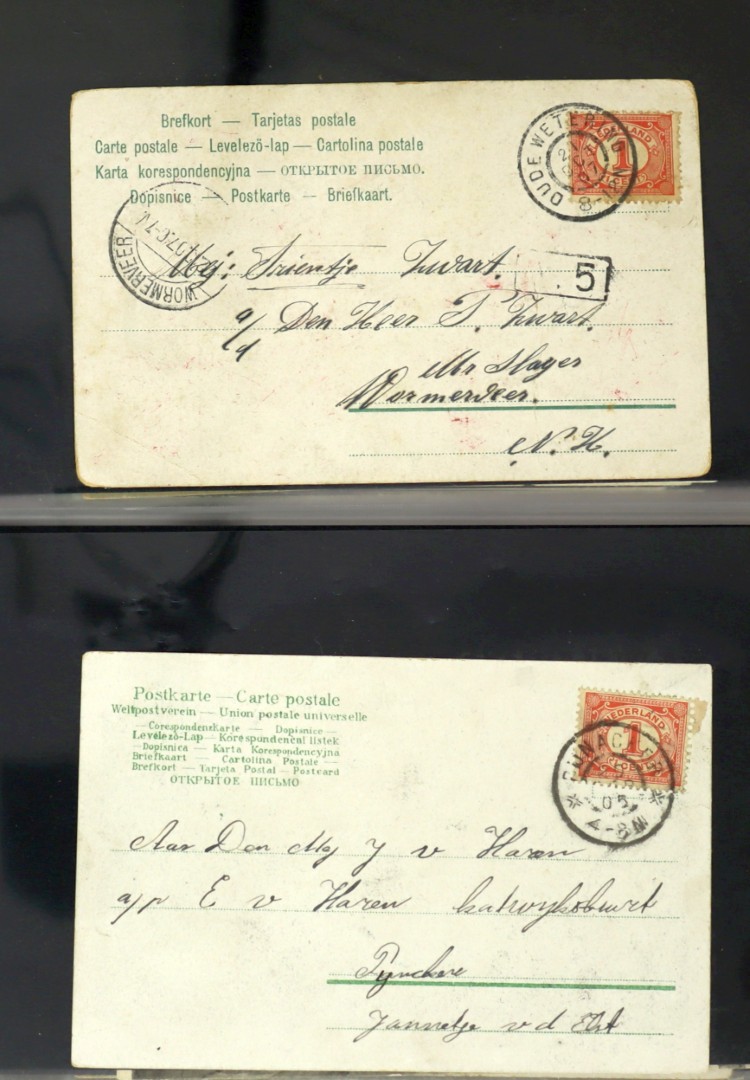 Brefkort — Tarjetas postale
Carte postale — Levelezö-lap — Cartolina postale
Karta korespondencyjna — ОТКРЫТОЕ ПИСЬМО.
Dopisnice — Postkarte — Briefkaart.
OUDEWETERING
8-
NEDERLAND
1
WORMERVEER
Mej: Trientje Zwart.
. 5
a/d Den Heer S. Zwart.
Mr Slager
Wormerveer.
N. H.
Postkarte — Carte postale
Weltpostverein — Union postale universelle
— Corespondenzkarte — Dopisnice —
Levelezö-Lap — Korespondencni listek
— Dopisnica — Karta Korespondencyjna
Briefkaart — Cartolina Postale —
Brefkort — Tarjeta Postal — Postcard
ОТКРЫТОЕ ПИСЬМО
NEDERLAND
1
CENT
05
4-8N
Aan Den Mej J v Haren
a/p E v Haren
Jannetje v d